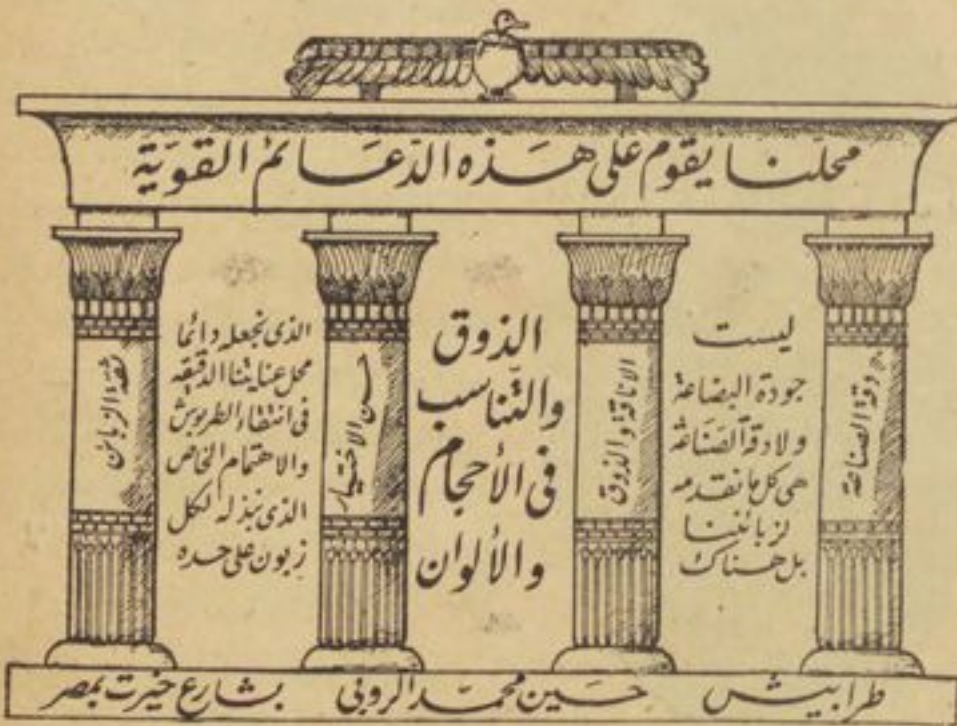 محلنا يقوم على هذه الدعائم القوية
دقة الصناعة
ليست
جودة البضاعة
ولا دقة الصناعة
هي كل ما نقدمه
لزبائننا
بل هناك
الاناقة والذوق
الذوق
والتناسب
في الأحجام
والألوان
حسن الاختيار
الذي نجعله دائما
محل عنايتنا الدقيقه
في انتقاء الطربوش
والاهتمام الخاص
الذي نبذله لكل
زبون على حده
ثقة الزبائن
طرابيش حسين محمد الروبي بشارع خيرت بمصر